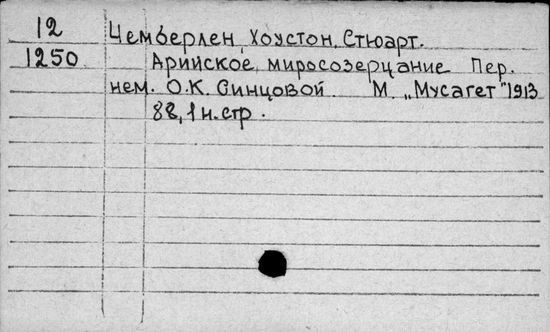 12 Чемберлен, Хоустон, Стюарт.
1250 Арийское миросозерцание Пер.
нем. О.К. Синцовой М. „Мусагет" 1913
88, 1 н. стр.